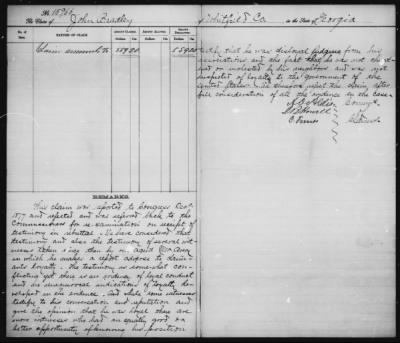 No. 15766
The Claim of John Bradley of Whitfield Co in the State of Georgia
No. of Item.
NATURE OF CLAIM.
AMOUNT CLAIMED.
AMOUNT DISALLOWED.
Dolls. Cts.
Claim amounts to
that he was disloyal judging from his
associations and the fact that he was not
or molested by his neighbors and was not
suspected of loyalty to the government of the
United States. We therefore reject the claim after
full consideration of all the evidence in the case
A. O. Aldis
J. B. Howell
O. Ferriss
Comrs. of Claims
REMARKS.
This claim was reported to Congress Dec
1877 and rejected and was referred back to the
Commissioners for re-examination on receipt of
testimony in rebuttal. We have considered that
testimony and also the testimony of several wit-
nesses taken since then by our agent Mr Avery
in which he makes a report adverse to claim-
ants loyalty. The testimony is somewhat con-
flicting yet there is no evidence of loyal conduct
and no unequivocal indications of loyalty
in the evidence. And while some witnesses
testify to his conversation and reputation and
give the opinion that he was loyal there are
more witnesses who had an equally good or a
better opportunity of knowing his position